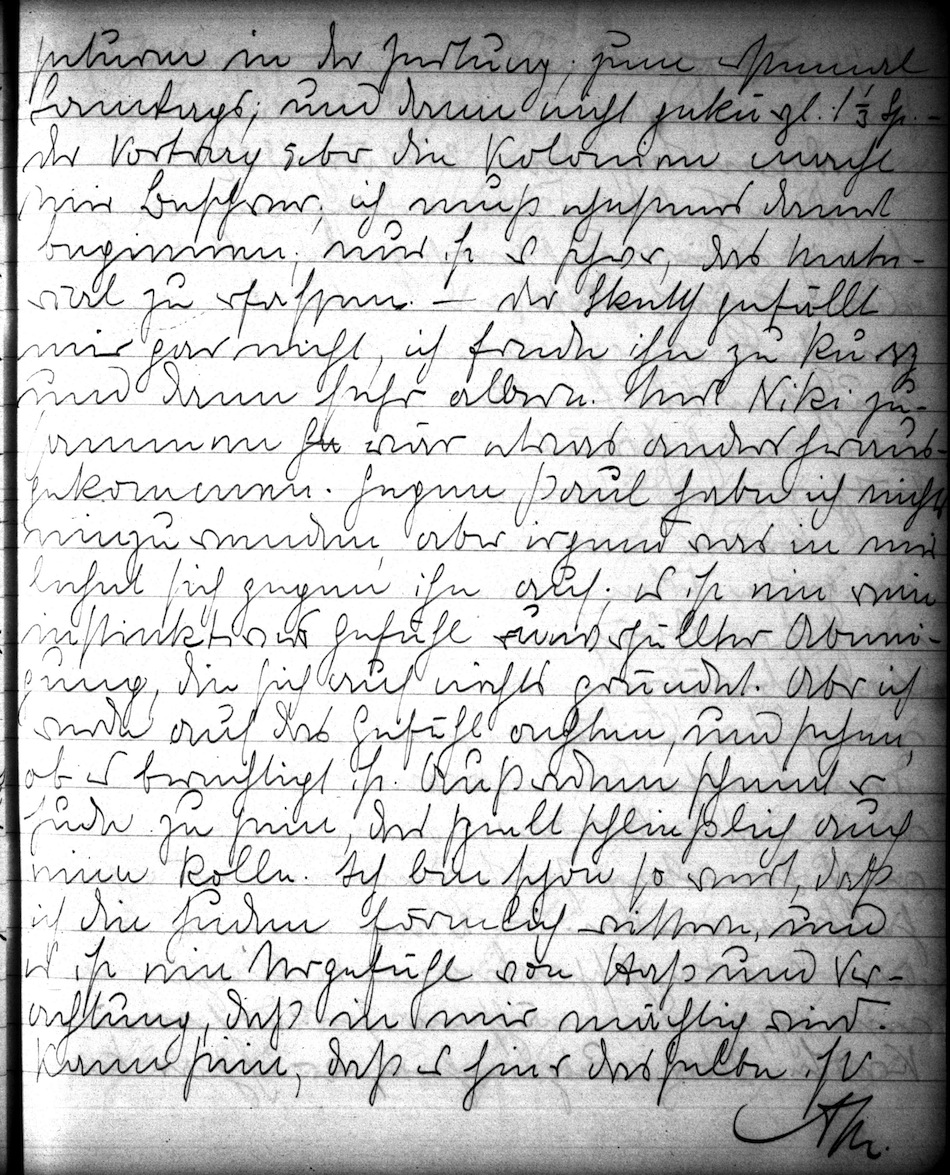 in der Zeitung, zum erstenmal
Sonntags, und dann nicht gekürzt. 1 1/3 Sp. -
der Vortrag über die Kolonien macht
mir Beschwer, ich muß ehestens damit
beginnen, nur ist es schwer, das Mate-
rial zu erfassen. — der gefällt
mir gar nicht, ich finde ihn zu kurz
und dann sehr albern. Mit Niki zu-
sammen wär etwas anders heraus-
gekommen. Gegen Paul habe ich nichts
einzuwenden, aber irgend was in mir
lehnt sich gegen ihn auf; es ist ein rein
instinktives Gefühl unverhüllter Abnei-
gung, die sich auf nichts gründet. Aber ich
werde auf das Gefühl achten, und sehen,
ob es berechtigt ist. Außerdem scheint er
Jude zu sein, das spielt schließlich auch
eine Rolle. Ich bin schon so weit, daß
ich die Juden förmlich wittere, und
es ist ein Urgefühl von Haß und Ver-
achtung, daß in mir mächtig wird.
Kann sein, daß es hier dasselbe ist